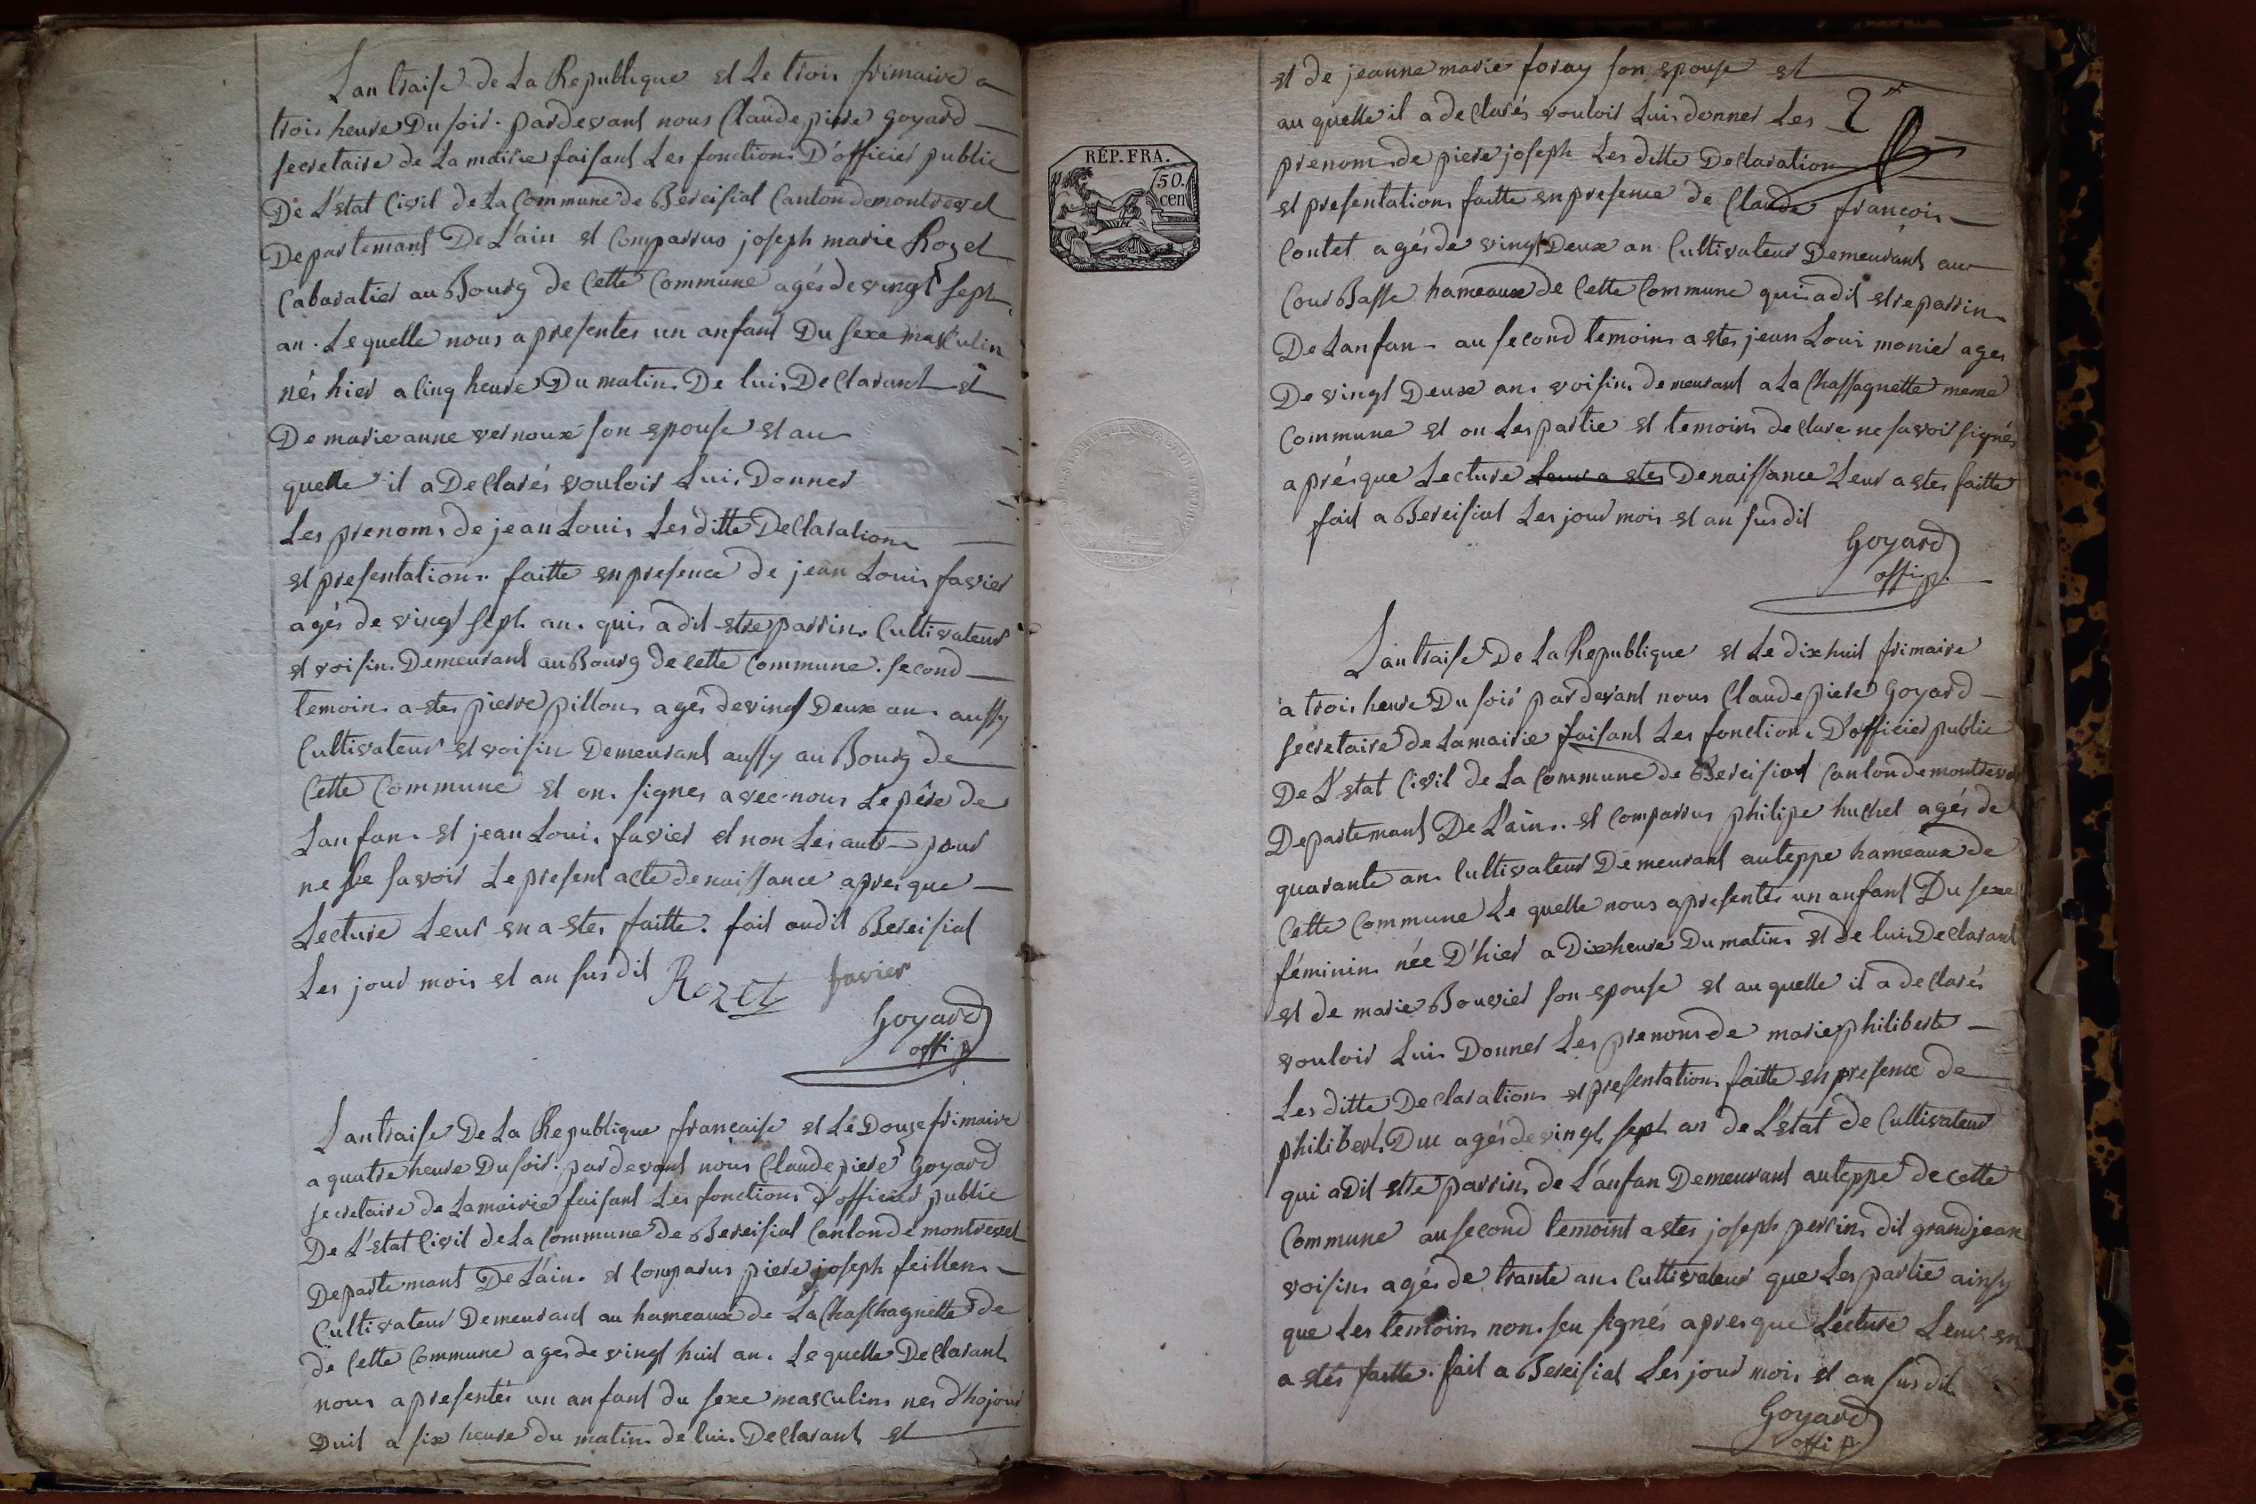 Lan traise de La Republique et Le trois frimaire a
trois heure Du soir. pardevant nous Claude pierre goyard
secretaire de La mairie faisant Les fonctions D'officier public
De L'etat Civil de La Commune de Bereisiat Canton de montrevel
Departemant De L'ain et Comparrus joseph marie Rozet
Cabaratier au Bourg de Cette Commune agés de vingt sept
an. Le quelle nous a presentes un anfant Du sexe masculin
nés hier a Cinq heure Du matin De lui Declarant et
De marie anne vernoux son epouse et au
quelle il a Declarés vouloir Lui Donner
Les prenoms de jean Louis Les ditte Declaration
et presentation faitte en presence de jean Louis favier
agés de vingt sept an. qui a dit etre parrin Cultivateur
et voisin Demeurant au Bourg de cette Commune. second
temoin a etes pierre pillon agés de vingt Deux an aussy
Cultivateur et voisin Demeurant aussy au Bourg de
Cette Commune et on signes avec nous Le pére de
Lanfan et jean Loui favier et non Les autr pour
ne Le savoir Le present acte de naissance apres que
Lecture Leur en a etes faitte. fait audit Bereisiat
Les jour mois et an susdit Rozet favier
Goyard
offi p
Lan traise De La Republique francaise et Le Douze frimaire
a quatre heure Du soir. pardevant nous Claude piere Goyard
secretaire de La mairie faisant Les fonctions d'officier public
De L'etat Civil de La Commune de Bereisiat Canton de montrevel
Departemant De L'ain. et Comparus piere joseph feillens
Cultivateur Demeurant au hameaux de La Chaschagnette de
de Cette Commune ages de vingt huit an. Le quelle Declarant
nous a presentés un anfant du sexe masculin nes d'hojour
Duit a six heure du matin de lui Declarant et
et de jeanne marie foray son epouse et
au quelle il a declarés vouloir Lui donner Les 2
prenom de piere joseph Les ditte Declaration
et presentation faitte en presence de Claude françois
Contet agés de vingt Deux an Cultivateur Demeurant au
Cour Basse hameaux de Cette Commune qui a dit etre parrin
De Lanfan au second temoin a etes jean Loui monier ages
De vingt Deux an voisin demeurant a La Chassagnette meme
Commune et on Les partie et temoin declare ne savoir signés
aprés que Lecture Leur a etes De naissance Leur a etes faitte
fait a Bereisiat Les jour mois et an susdit
Goyard
offi p.
REP. FRA.
50.
cen
Lan traise De La Republique et Le dix huit frimaire
a trois heure Du soir pardevant nous Claude piere Goyard
secretaire de La mairie faisant Les fonction D'officier public
De L'etat Civil de La Commune de Bereisiat Canton de montrevel
Departemant De L'ain. et Comparrus philipe huchet agés de
quarante an Cultivateur Demeurant au teppe hameaux de
Cette Commune Le quelle nous a presentés un anfant Du sexe
féminin née D'hier a Dix heure Du matin et de lui Declarant
et de marie Bouvier son epouse et au quelle il a declarés
vouloir Lui Donner Les prenom de marie philiberte
Les ditte Declaration et presentation faitte en presence de
philibert Duc agés de vingt sept an de L'etat de Cultivateur
qui a dit etre parrin de L'anfan Demeurant au teppe de cette
Commune au second temoint a etes joseph perrin dit grandjean
voisin agés de trante an Cultivateur que Les partie ainsy
que Les temoin non seu signés apres que Lecture Leur en
a etés faitte. fait a Bereisiat Les jour mois et an susdit
Goyard
offi p